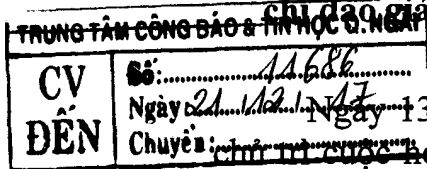 chỉ đạo giá
TRUNG TÂM CÔNG BÁO & TIN HỌC Q. NGÃI
CV ĐẾN
Số: 11686
Ngày: 21/12/17
Ngày 13
Chuyển:
chủ trì cuộc họ